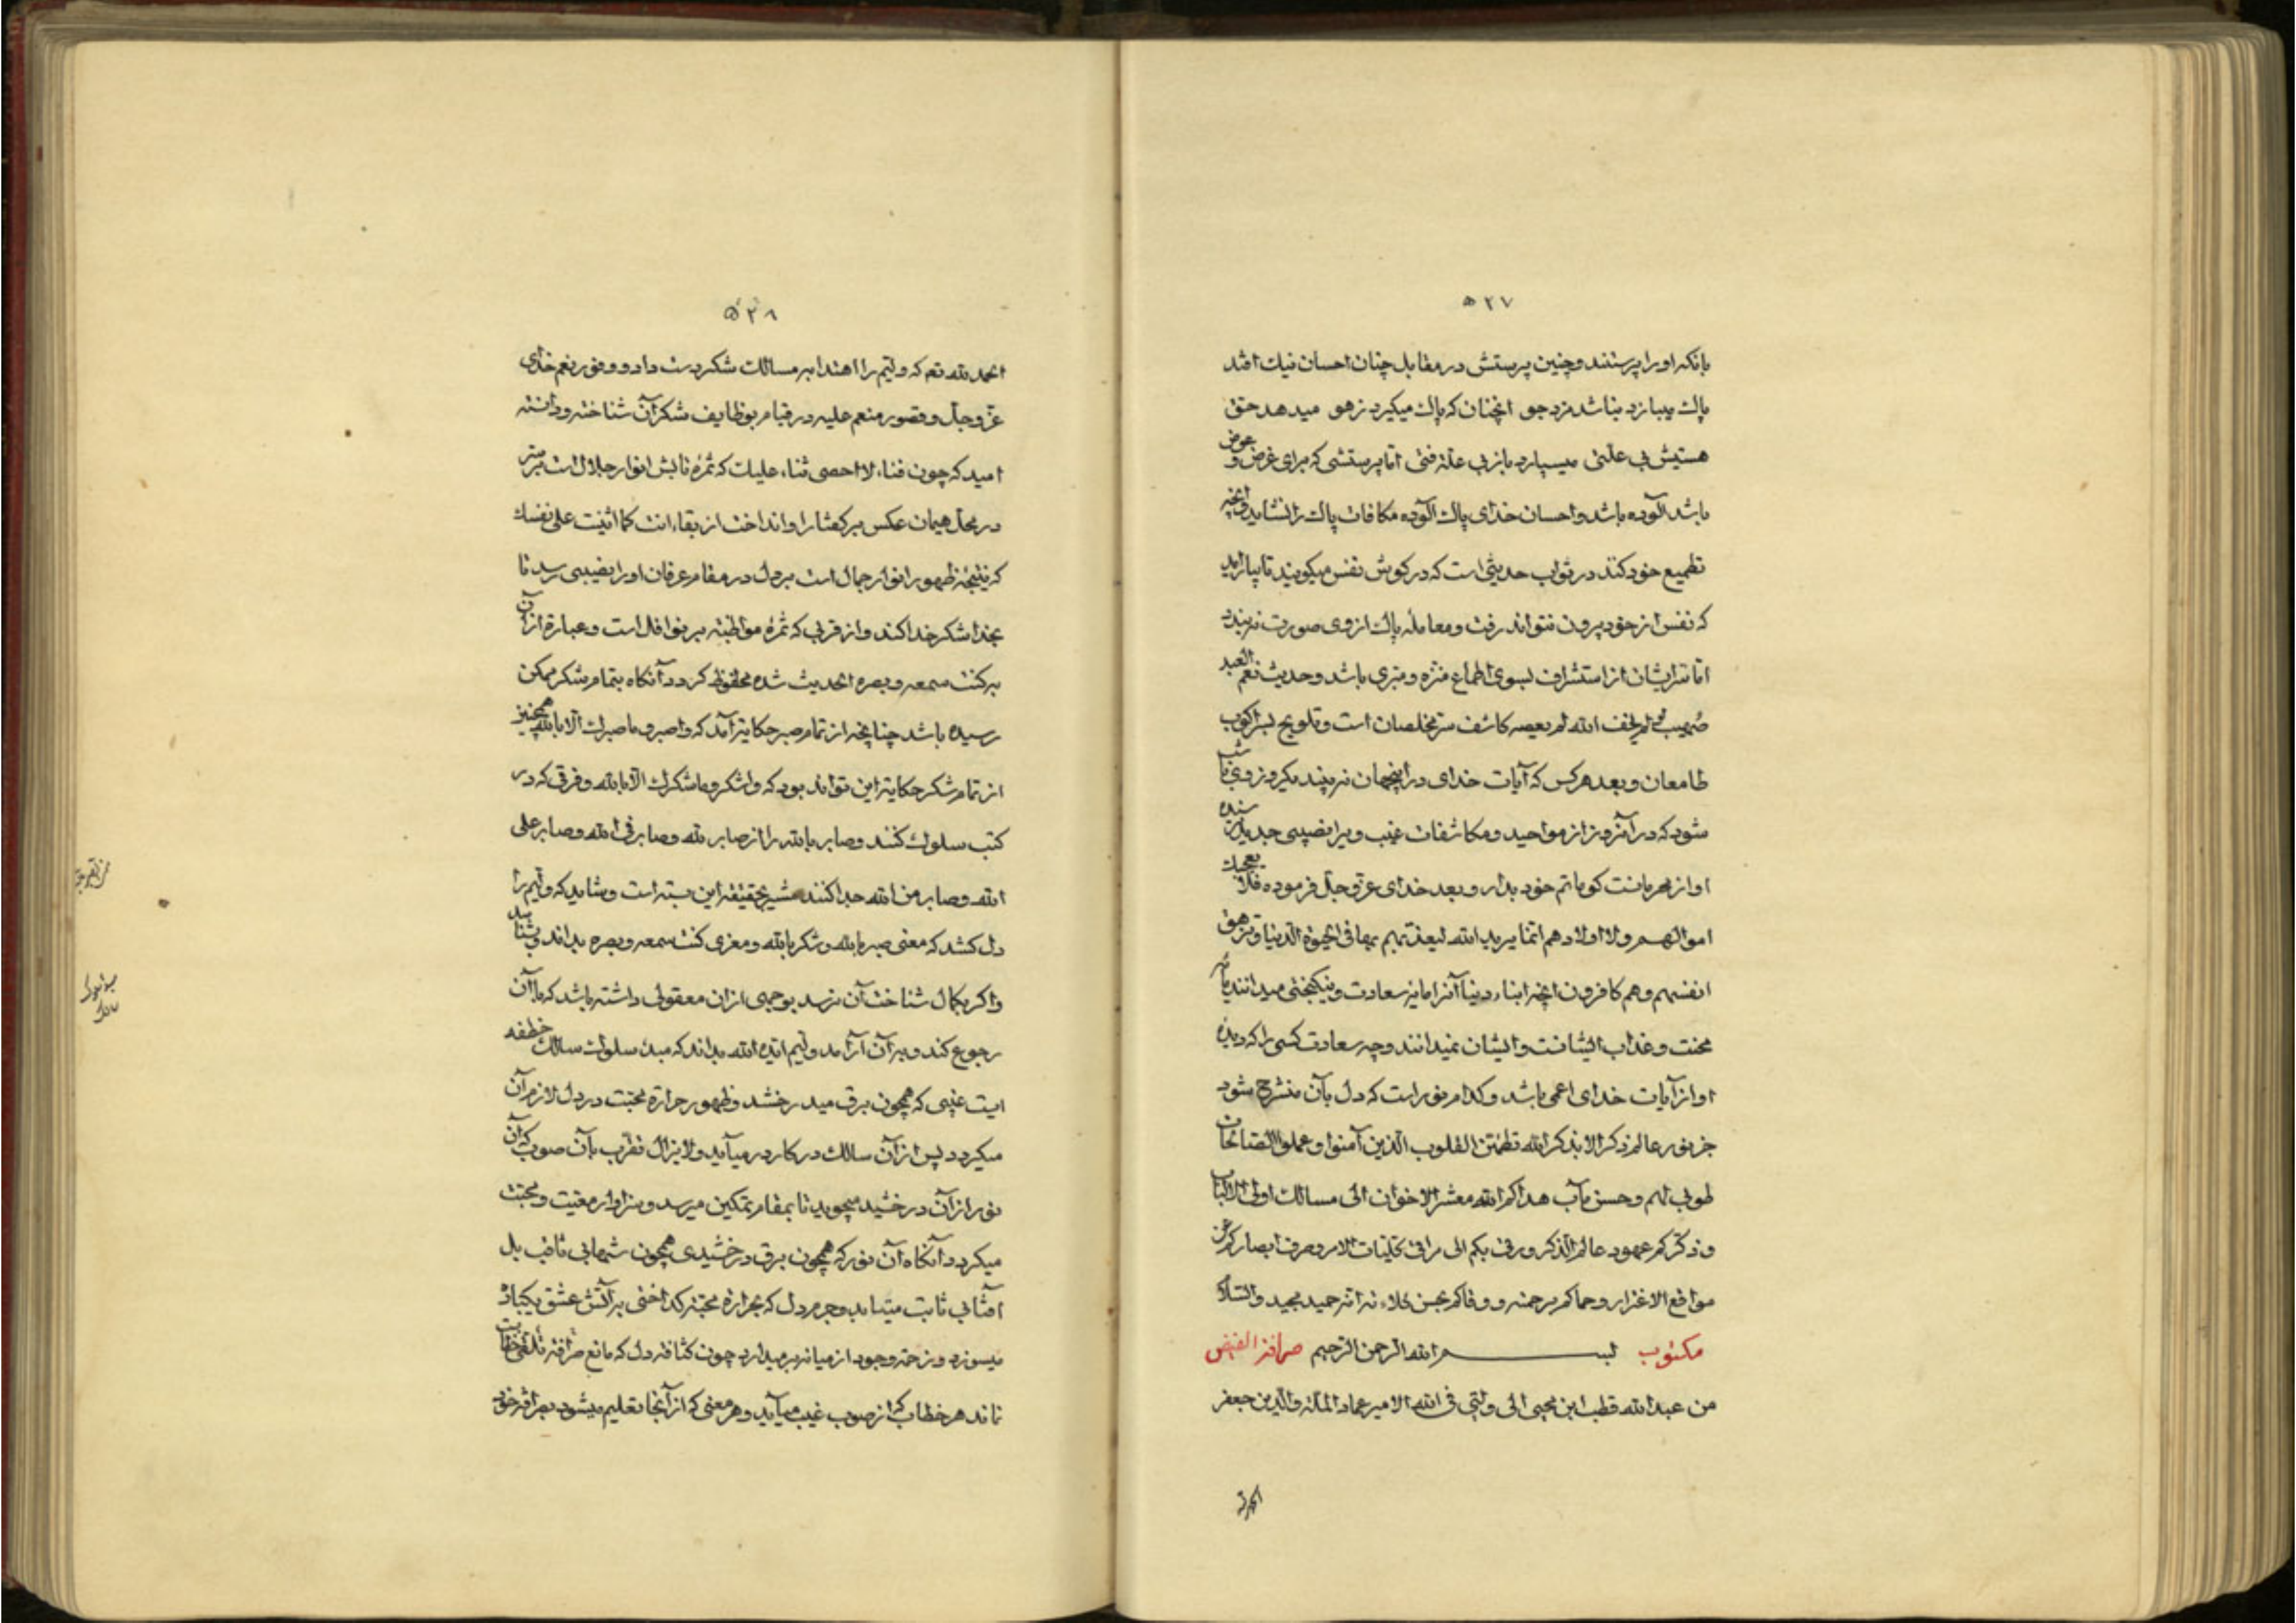 ۵۲۷
بانکه او را پرستند و چنین پرستش در مقابل چنان احسان نیک افتد
پاک میبازد بناشد مزدجو آنچنان که پاک میکیرد زهو میدهد حق
هستیش بی علتی میسپارد باز بی علة فتی اما پرستشی که برای غرض و عوض
باشد آلوده باشد و احسان خدای پاک آلوده مکافات پاک را نشاید و آنچه
تطمیع خود کنند در ثواب حدیثی است که در کوش نفس میکویند تا بیاراید
که نفس از خود بیرون نتواند رفت و معامله پاک از وی صورت نه بندد
اما سر ایشان از استشراف بسوی اطماع منزه و متبری باشد و حدیث نعم العبد
صهیب لو لم یخف الله لم یعصه کاشف سر مخلصان است و تلویح
طامعان و بعد هر کس که آیات خدای در اینجهان نه بیند یکروز وی
شود که در آنروز از مواجید و مکاشفات غیب ویرا نصیبی جدید
او از بهر مانست کو ماتم خود بدار و بعد خدای عز و جل فرموده فلا تعجبک
اموالهم ولا اولادهم انما یرید الله لیعذبهم بها فی الحیوة الدنیا و تزهق
انفسهم و هم کافرون آنچه ابناء دنیا آنرا مایه سعادت و نیکبختی میدانند
محنت و عذاب ایشانست و ایشان نمیدانند و چه سعادت کسی را که دیده
او از آیات خدای اعمی باشد و کدام نور است که دل بآن منشرح شود
جز نور عالم ذکر الا بذکر الله تطمئن القلوب الذین آمنوا و عملوا الصالحات
طوبی لهم و حسن مآب هداکم الله معشر الاخوان الی مسالک اولی الالباب
و ذکرکم عهود عالم الذکر و رقی بکم الی مراقی کلیات الامر و صرف ابصارکم عن
مواقع الاغترار و حماکم برحمته و وقاکم بحسن کلاءته انه حمید مجید والسلام
مکتوب بسم الله الرحمن الرحیم صرافة الفیض
من عبد الله قطب ابن محیی الی ولیی فی الله الامیر عماد الملة والدین جعفر
الحمد لله
۵۲۸
الحمد لله تعم که ولیم را اهتدا بر مسالک شکر دست داد و وفور نعم خدای
عز و جل و قصور منعم علیه در قیام بوظایف شکر آن شناخته و دانسته
امید که چون فناء لا احصی ثناء علیک که ثمره تابش انوار جلال است بر سر
در محل هیمان عکس بر کفتار او انداخت از بقاء انت کما اثنیت علی نفسک
که نتیجه ظهور انوار جمال است بر دل در مقام عرفان او را نصیبی رسد تا
بخدا شکر خدا کند و از قربی که ثمره مواظبته بر نوافل است و عبارة از آن
برکنت سمعه و بصره الحدیث شده محظوظ کردد آنکاه بتمام شکر ممکن
رسیده باشد چنانچه از تمام صبر حکایة آمد که واصبر و ما صبرک الا بالله همچنین
از تمام شکر حکایة این تواند بود که واشکر و ما شکرک الا بالله و فرقی که در
کتب سلوک کنند و صابر بالله را از صابر لله و صابر فی الله و صابر علی
الله و صابر من الله جدا کنند مشیر بحقیقة این است و شاید که ولیم را
دل کشد که معنی صبر بالله و شکر بالله و مغزی کنت سمعه و بصره بداند و بشناسد
واکر بکمال شناخت آن نرسد بوجهی از آن معقولی داشته باشد که با آن
رجوع کند و بر آن آرامد ولیم ایده الله بداند که مبدء سلوک سالک خطفه
ایست غیبی که همچون برق میدرخشد و ظهور حرارة محبت در دل لازم آن
میکردد پس از آن سالک در کار در میآید و لا یزال تقرب بآن صوب که آن
نور از آن درخشید میجوید تا بمقام تمکین میرسد و سزاوار معیت و محبت
میکردد آنکاه آن نور که همچون برق درخشیدی همچون شهابی ثاقب بل
آفتابی ثابت میتابد و جرم دل که بحرارة محبت کداختی بر آتش عشق یکباره
میسوزد و زحمة وجود از میانه بر میدارد چون کثافة دل که مانع صرافة تلقی خطاب
نماند هر خطاب که از صوب غیب میآید و هر معنی که از آنجا تعلیم میشود بصرافة خود